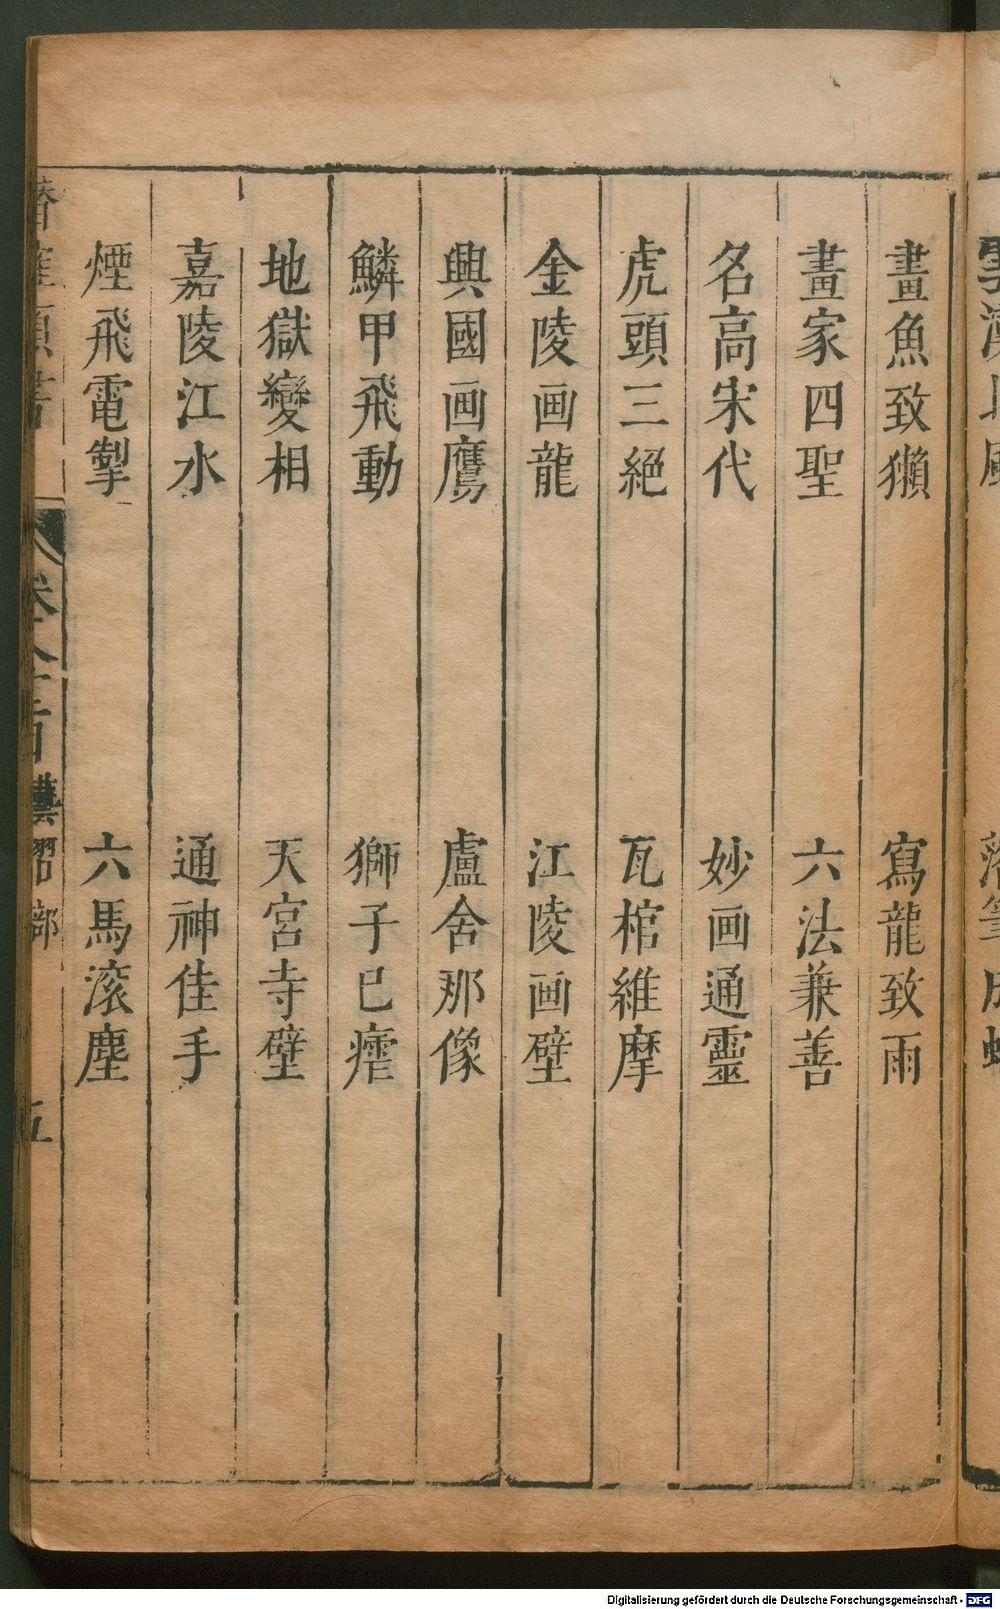 畫魚致獺 寫龍致雨
畫家四聖 六法兼善
名高宋代 妙画通靈
虎頭三絕 瓦棺維摩
金陵画龍 江陵画壁
興國画鷹 盧舍那像
鱗甲飛動 獅子已瘧
地獄變相 天宮寺壁
嘉陵江水 通神佳手
煙飛電掣 六馬滚塵
五
Digitalisierung gefördert durch die Deutsche Forschungsgemeinschaft - DFG